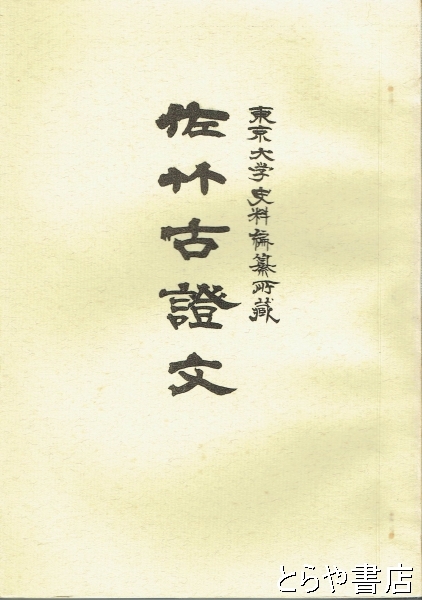 東京大学史料編纂所蔵
佐竹古證文
とらや書店